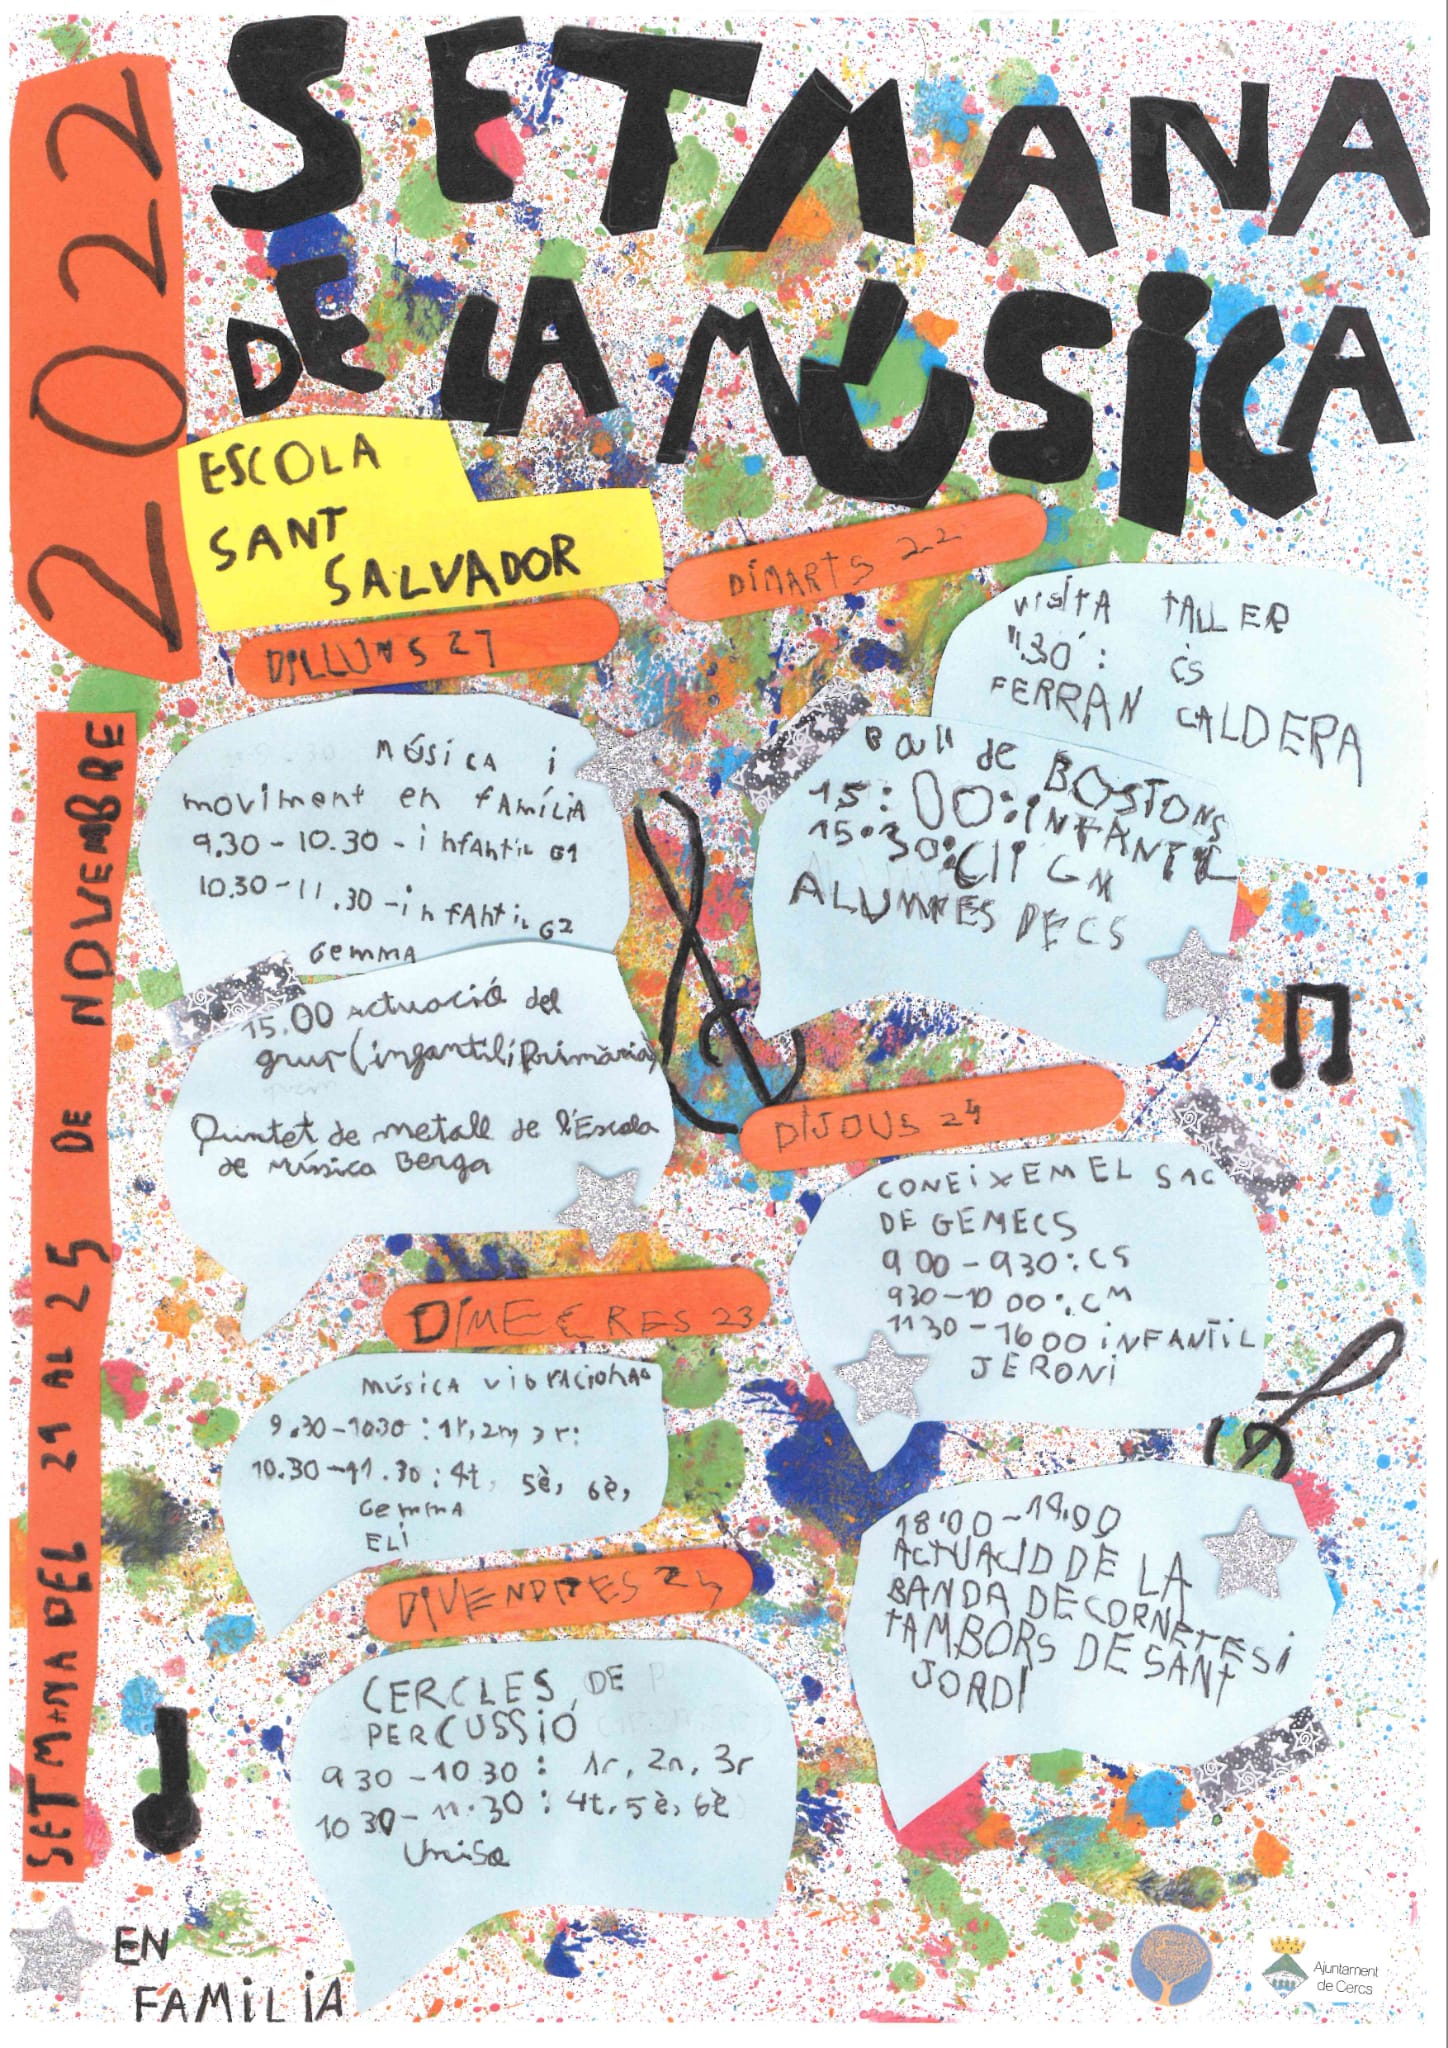 2022
SETMANA
DE LA MÚSICA
ESCOLA
SANT
SALVADOR
SETMANA DEL 21 AL 25 DE NOVEMBRE
DILLUNS 21
MÚSICA i
moviment en fAMÍLiA
9.30 - 10.30 - infAntil G1
10.30 - 11.30 - infAntil G2
Gemma
15.00 Actuació del
grup (infantil i Primària)
Quintet de metall de l'Escola
de Música Berga
DIMARTS 22
visitA TALLER
11'30': CS
FERRAN CALDERA
Ball de BOSTONS
15:00: iNFANTIL
15:30: CI I CM
ALUMNES DE CS
DIMECRES 23
MÚSiCA vibracional
9.30 - 10.30 : 1r, 2n, 3r:
10.30 - 11.30 : 4t, 5è, 6è,
Gemma
ELi
DIJOUS 24
CONEiXEM EL SAC
DE GEMECS
9 00 - 9 30 : CS
9 30 - 10 00 : CM
11 30 - 16 00 iNFANTiL
JERONi
18'00 - 19'00
ACTUACIÓ DE LA
BANDA DE CORNETES i
TAMBORS DE SANT
JORDI
DIVENDRES 25
CERCLES DE
PERCUSSIÓ
9 30 - 10 30 : 1r, 2n, 3r
10 30 - 11.30 : 4t, 5è, 6è
EN
FAMILIA
Ajuntament
de Cercs